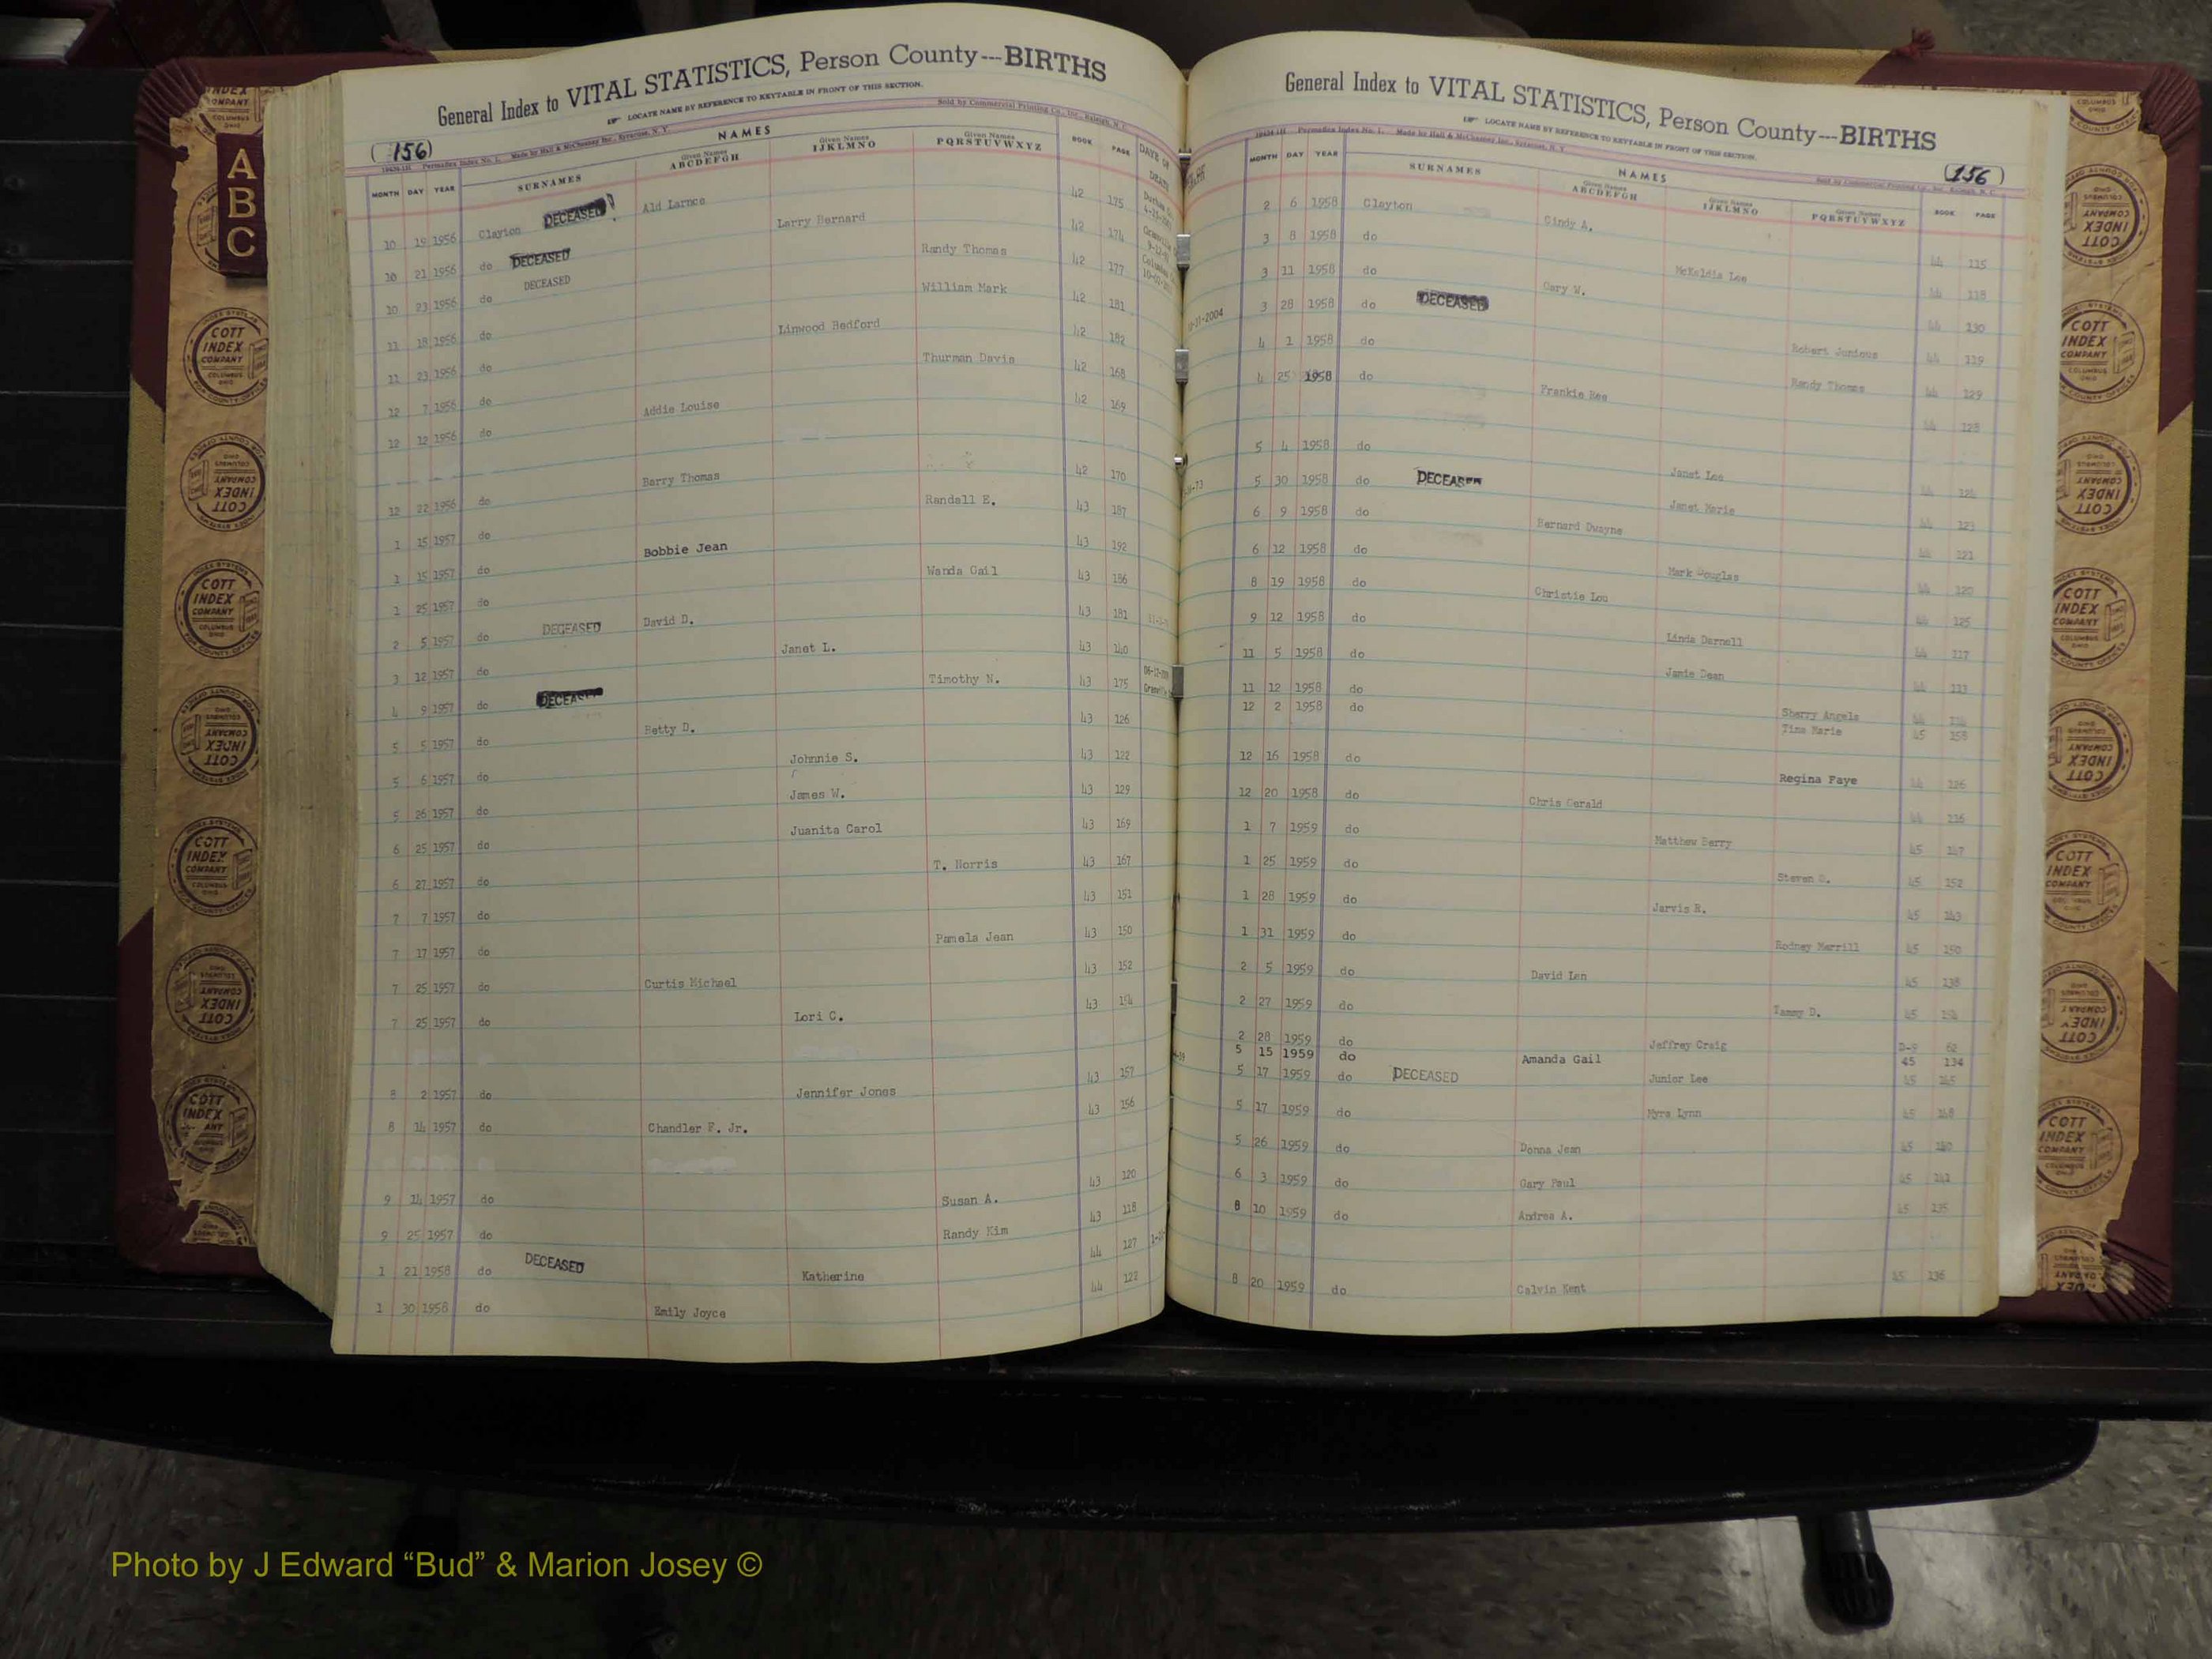 General Index to VITAL STATISTICS, Person County---BIRTHS
LOCATE NAME BY REFERENCE TO KEYTABLE IN FRONT OF THIS SECTION.
(156)
Sold by Commercial Printing Co., Inc., Raleigh, N. C.
Permadex Index No. 1. Made by Hall & McChesney Inc., Syracuse, N. Y.
NAMES
MONTH DAY YEAR SURNAMES Given Names ABCDEFGH Given Names IJKLMNO Given Names PQRSTUVWXYZ BOOK PAGE DATE OF DEATH
10 19 1956 Clayton DECEASED Ald Larnce 42 175
10 21 1956 do DECEASED Larry Bernard 42 174
10 23 1956 do DECEASED Randy Thomas 42 177
11 18 1956 do William Mark 42 181
11 23 1956 do Linwood Bedford 42 182
12 7 1956 do Thurman Davis 42 168
12 12 1956 do Addie Louise 42 169
12 22 1956 do Barry Thomas 42 170
1 15 1957 do Randall E. 43 187
1 15 1957 do Bobbie Jean 43 192
1 25 1957 do Wanda Gail 43 186
2 5 1957 do DECEASED David D. 43 181
3 12 1957 do Janet L. 43 140
4 9 1957 do DECEASED Timothy N. 43 175
5 5 1957 do Betty D. 43 126
5 6 1957 do Johnnie S. 43 122
5 26 1957 do James W. 43 129
6 25 1957 do Juanita Carol 43 169
6 27 1957 do T. Norris 43 167
7 7 1957 do 43 151
7 17 1957 do Pamela Jean 43 150
7 25 1957 do Curtis Michael 43 152
7 25 1957 do Lori C. 43 154
8 2 1957 do Jennifer Jones 43 157
8 14 1957 do Chandler F. Jr. 43 156
9 14 1957 do Susan A. 43 120
9 25 1957 do Randy Kim 43 118
1 21 1958 do DECEASED Katherine 44 127
1 30 1958 do Emily Joyce 44 122
General Index to VITAL STATISTICS, Person County---BIRTHS
LOCATE NAME BY REFERENCE TO KEYTABLE IN FRONT OF THIS SECTION.
(156)
Permadex Index No. 1. Made by Hall & McChesney Inc., Syracuse, N. Y.
Sold by Commercial Printing Co., Inc., Raleigh, N. C.
NAMES
MONTH DAY YEAR SURNAMES Given Names ABCDEFGH Given Names IJKLMNO Given Names PQRSTUVWXYZ BOOK PAGE
2 6 1958 Clayton Cindy A. 44 115
3 8 1958 do McKeldis Lee 44 118
3 11 1958 do Gary W. 44 130
3 28 1958 do DECEASED Robert Junious 44 119
4 1 1958 do Randy Thomas 44 129
4 25 1958 do Frankie Ree 44 128
5 4 1958 do Janet Lee 44 124
5 30 1958 do DECEASED Janet Marie 44 123
6 9 1958 do Bernard Dwayne 44 121
6 12 1958 do Mark Douglas 44 120
8 19 1958 do Christie Lou 44 125
9 12 1958 do Linda Darnell 44 117
11 5 1958 do Jamie Dean 44 113
11 12 1958 do Sherry Angela 44
12 2 1958 do Tina Marie 45 158
12 16 1958 do Regina Faye 44 126
12 20 1958 do Chris Gerald 44 116
1 7 1959 do Matthew Berry 45 147
1 25 1959 do Steven D. 45 152
1 28 1959 do Jarvis R. 45 143
1 31 1959 do Rodney Merrill 45 150
2 5 1959 do David Len 45 138
2 27 1959 do Tammy D. 45 154
2 28 1959 do Jeffrey Craig D-9 62
5 15 1959 do Amanda Gail 45 134
5 17 1959 do DECEASED Junior Lee 45 145
5 17 1959 do Myra Lynn 45 148
5 26 1959 do Donna Jean 45 140
6 3 1959 do Gary Paul 45 141
8 10 1959 do Andrea A. 45 135
8 20 1959 do Calvin Kent 45 136
A
B
C
COTT INDEX COMPANY COLUMBUS OHIO
Photo by J Edward “Bud” & Marion Josey ©